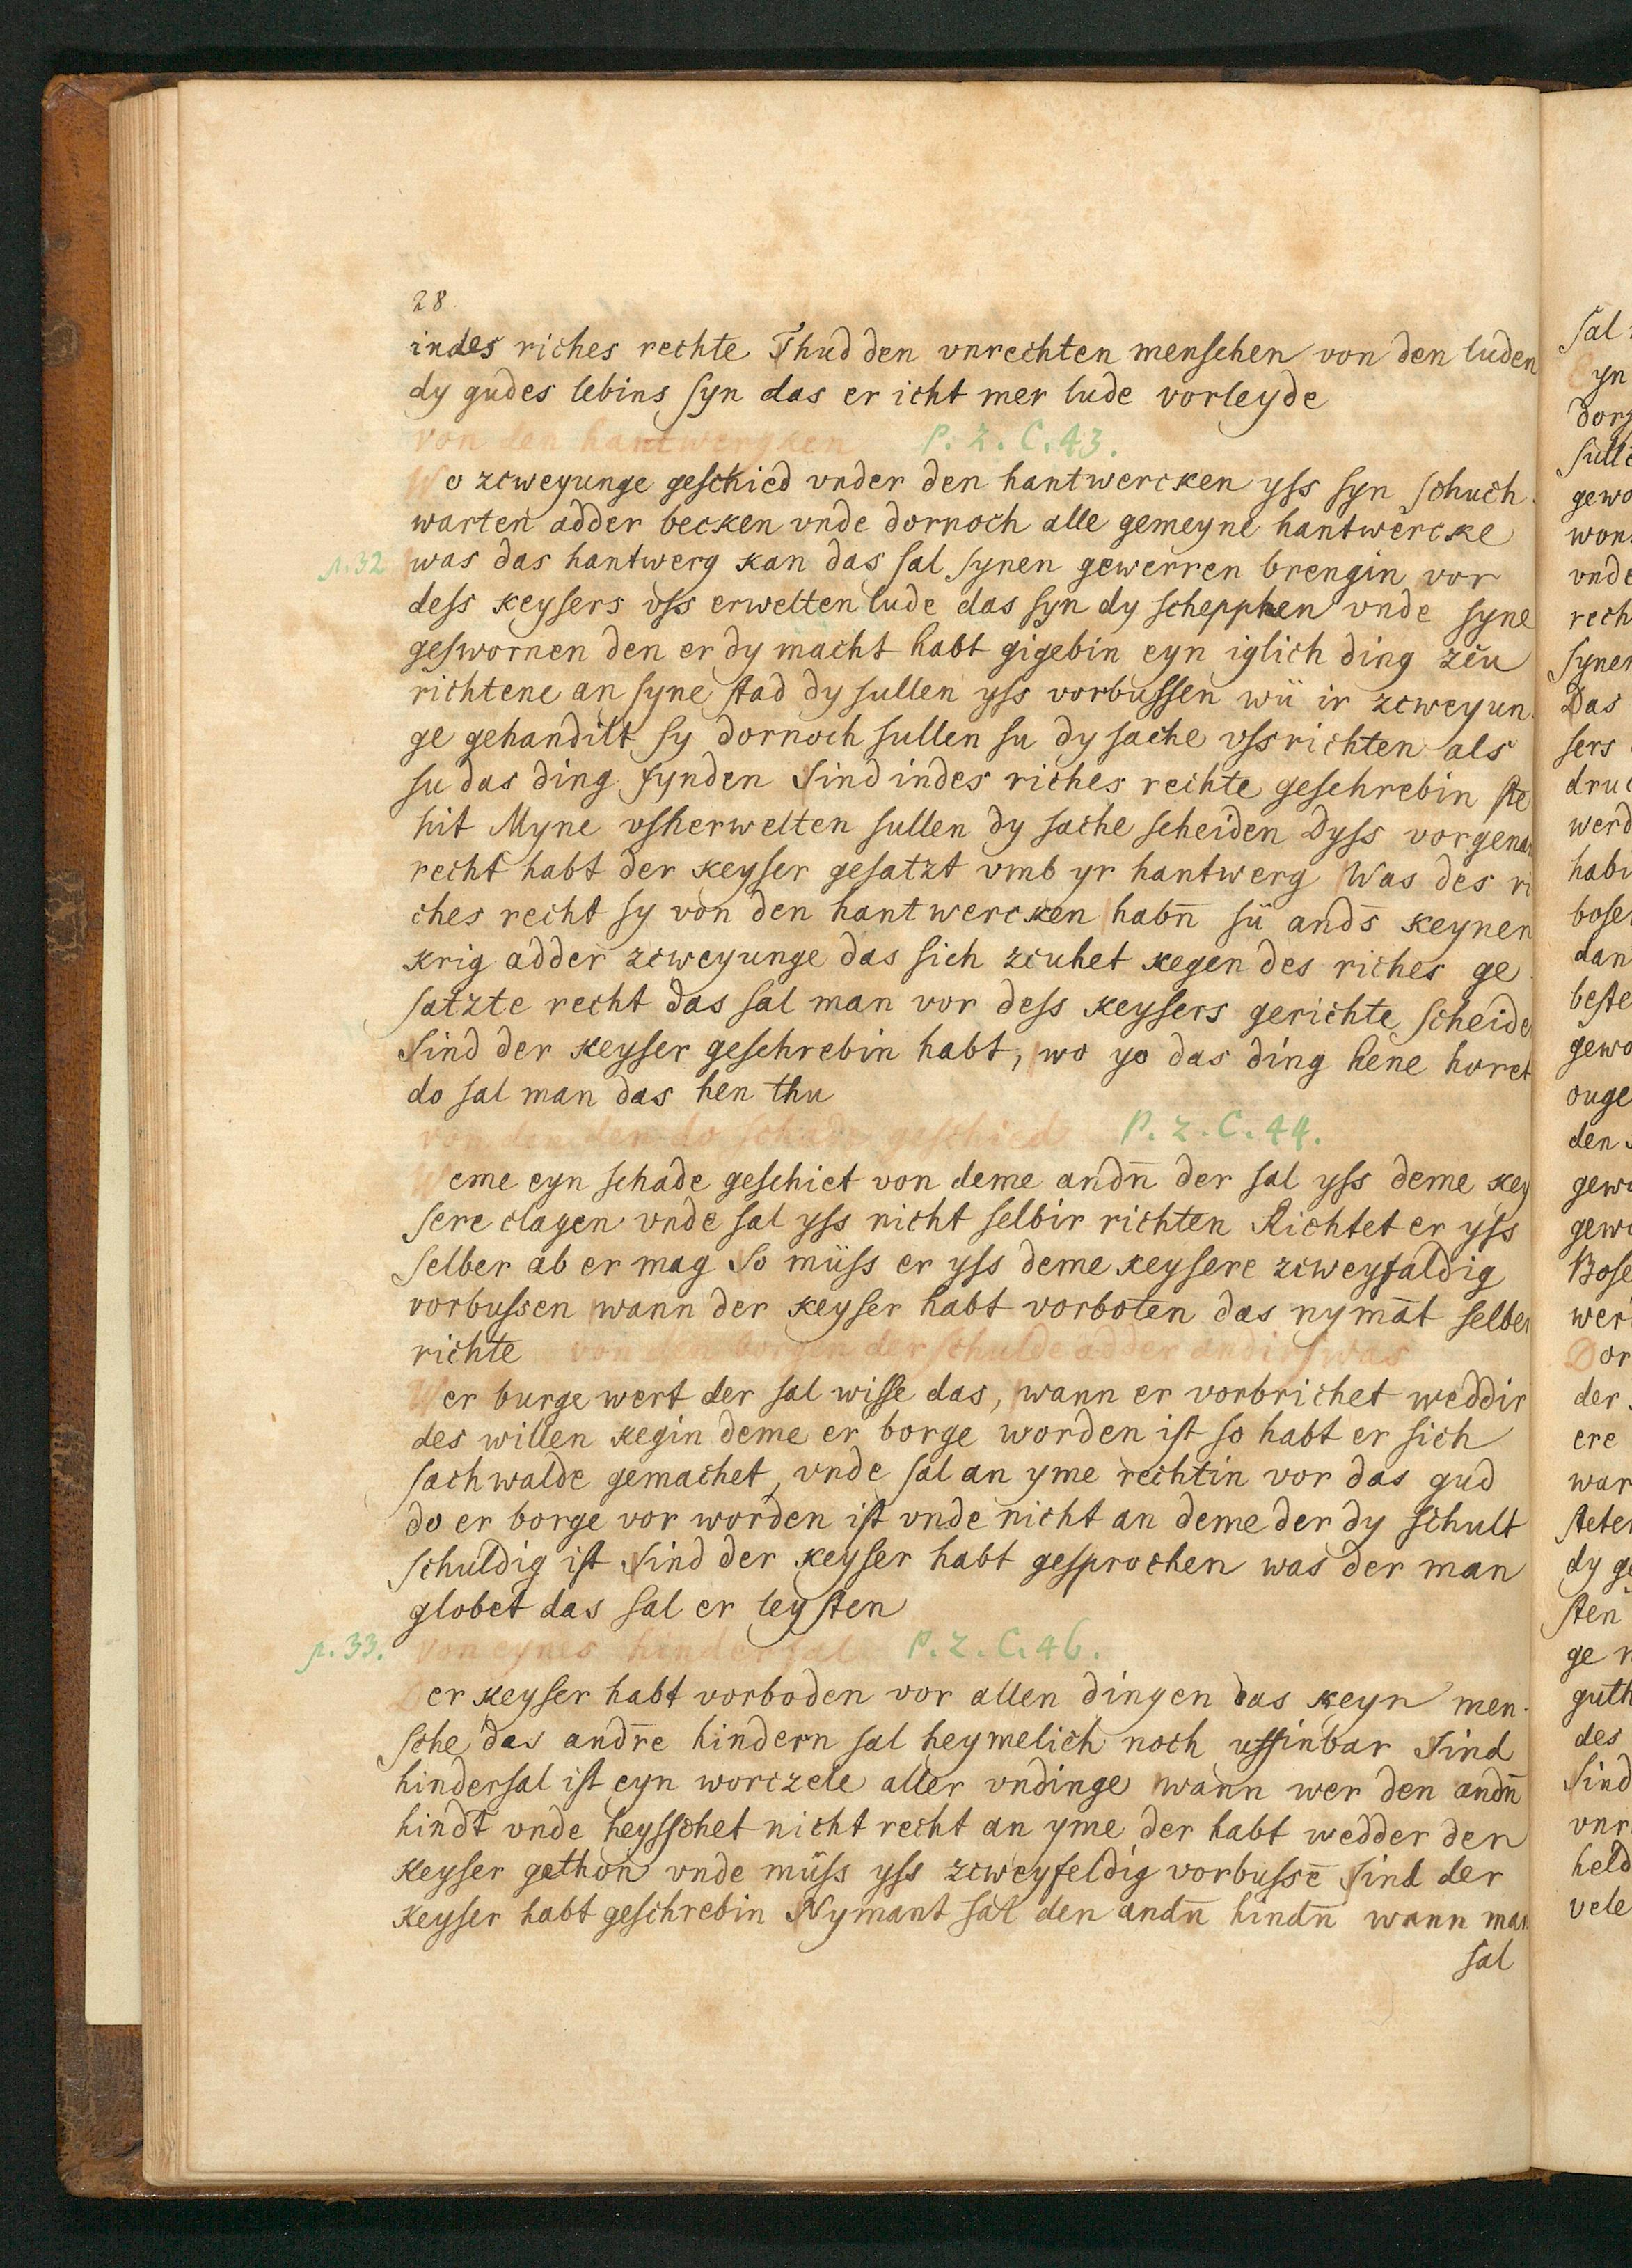 28.
indes riches rechte Thud den vnrechten menschen von den luden
dy gudes lebins syn das er icht mer lude vorleyde
von den hantwergken P. 2. C. 43.
Wo zcweyunge geschied vnder den hantwercken yss syn schuch-
warten adder becken vnde dornoch alle gemeyne hantwercke
p. 32 was das hantwerg kan das sal synen gewerren brengin vor
dess keysers vss erwelten lude das syn dy schepphen vnde syne
geswornen den er dy macht habt gigebin eyn iglich ding zcu
richtene an syne stad dy sullen yss vorbussen wü ir zcweyun-
ge gehandilt sy dornoch sullen su dy sache vssrichten als
su das ding fynden Sind indes riches rechte geschrebin ste
hit Myne vsherwelten sullen dy sache scheiden Dyss vorgenan
recht habt der keyser gesatzt vmb yr hantwerg Was des ri
ches recht sy von den hantwercken habn̄ sü and̄s keynen
krig adder zcweyunge das sich zcuhet kegen des riches ge-
satzte recht das sal man vor dess keysers gerichte scheide
Sind der keyser geschrebin habt, wo yo das ding hene horet
do sal man das hen thu
von den den do schade geschied P. 2. C. 44.
Weme eyn schade geschiet von deme andn̄ der sal yss deme key
sere clagen vnde sal yss nicht selbir richten Richtet er yss
selber ab er mag So müss er yss deme keysere zcweyfaldig
vorbussen wann der keyser habt vorboten das nymāt selber
richte von den borgen der schulde adder andirs was
Wer burge wert der sal wisse das, wann er vorbrichet weddir
des willen kegin deme er borge worden ist so habt er sich
sachwalde gemachet, vnde sal an yme rechtin vor das gud
do er borge vor worden ist vnde nicht an deme der dy schult
schuldig ist Sind der keyser habt gesprochen was der man
globet das sal er leysten
p. 33. von eynes hindersal P. 2. C. 46.
Der keyser habt vorboden vor allen dingen das keyn men-
sche das andr̄e hindern sal heymelich noch uffinbar Sind
hindersal ist eyn worczele aller vndinge wann wer den andn̄
hind̄t vnde heysschet nicht recht an yme der habt wedder den
keyser gethon vnde müss yss zcweyfeldig vorbussē Sind der
keyser habt geschrebin Nymant sal den andn̄ hindn̄ wann man
sal